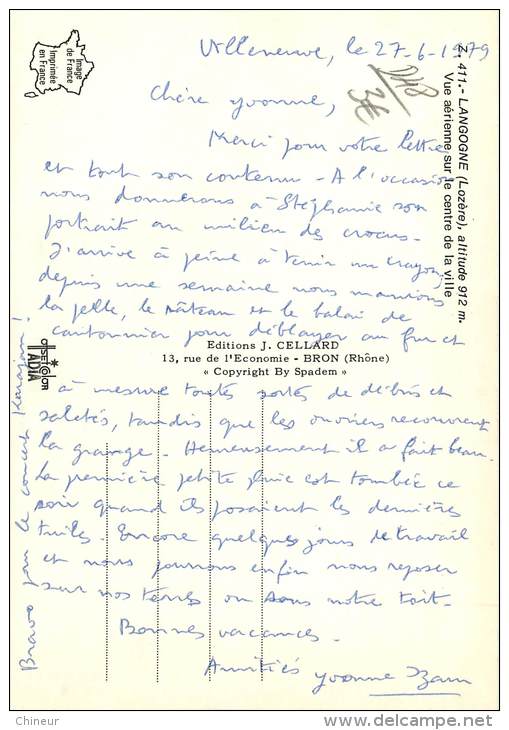 Villeneuve, le 27-6-1979
Chère Yvonne,
Merci pour votre lettre
et tout son contenu - A l'occasion
nous donnerons à Stéphanie son
portrait au milieu des crocus -
J'arrive à peine à tenir un crayon,
depuis une semaine nous manions
la pelle, le râteau et le balai de
cantonnier pour déblayer au fur et
à mesure toutes sortes de débris et
saletés, tandis que les ouvriers recouvrent
la grange - Heureusement il a fait beau.
La première petite pluie est tombée ce
soir quand ils posaient les dernières
tuiles. Encore quelques jours de travail
et nous pourrons enfin nous reposer
sur nos terres ou sous notre toit -
Bonnes vacances -
Amitiés Yvonne
Bravo pour le concert Karajan !
Z. 411.- LANGOGNE (Lozère), altitude 912 m.
Vue aérienne sur le centre de la ville
Image
de France
Imprimée
en France
Editions J. CELLARD
13, rue de l'Economie - BRON (Rhône)
« Copyright By Spadem »
OFFSETCOLOR
IADIA
3€
Chineur
www.delcampe.net